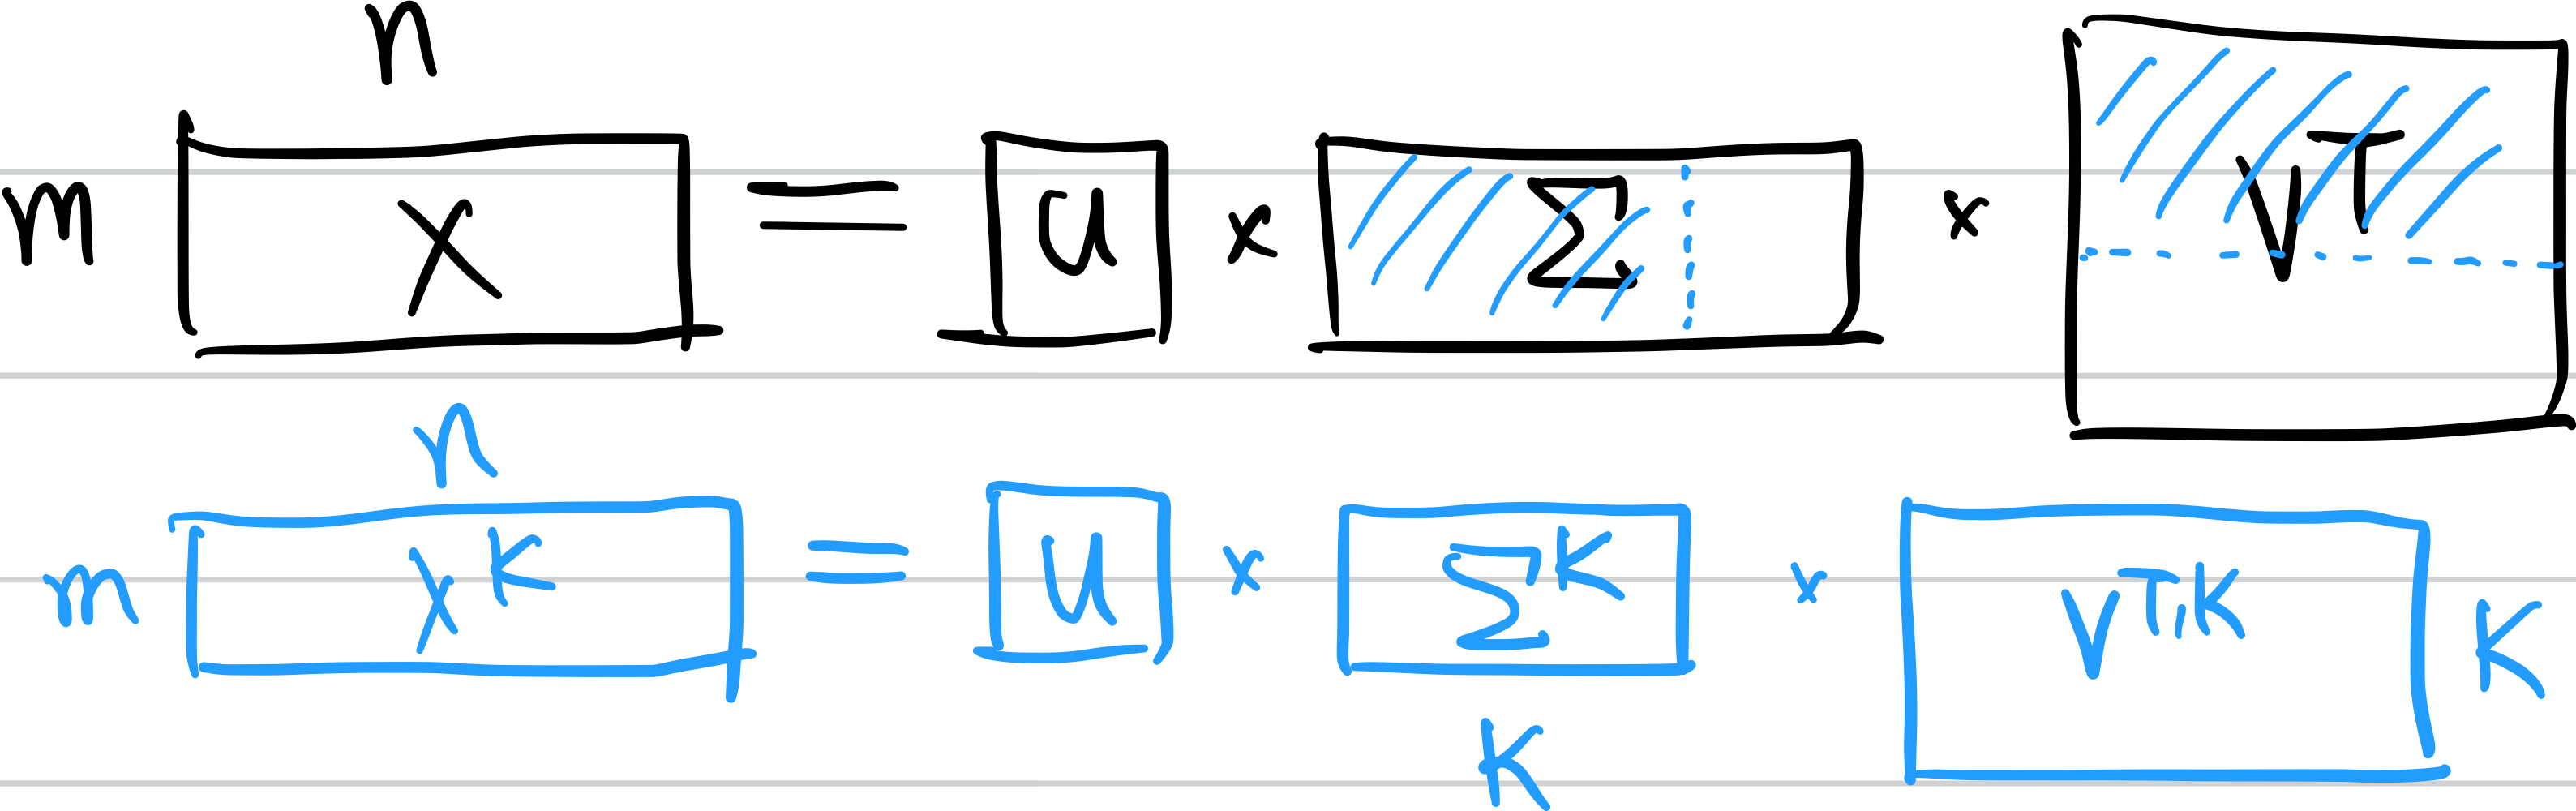 n
m X = U x Σ x V^T
n
m X^K = U x Σ^K x V^T,K K
K